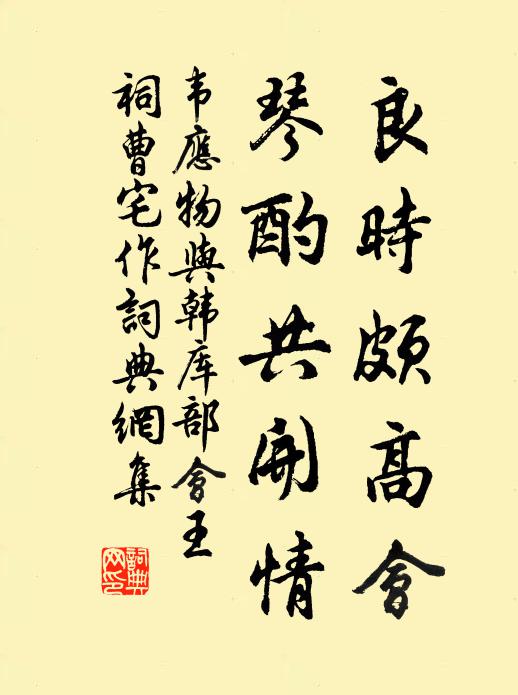 良時頗高會
琴酌共開情
韦應物與韩库部會王
祠曹宅作詞典網集
詞典
网印